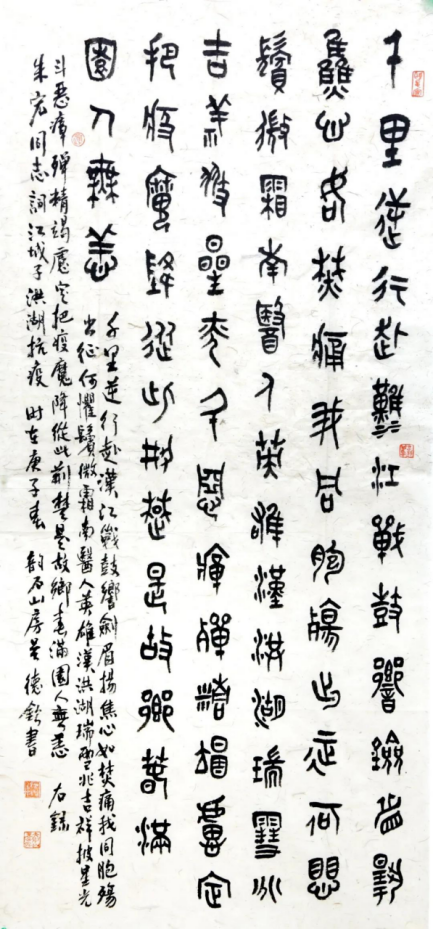 千里逆行赴漢江戰鼓響劍眉揚
焦心如焚痛我同胞殤出征何懼
鬢微霜南醫人英雄漢洪湖瑞雪兆
吉羊披星光斗惡瘴殫精竭慮定
把疫魔降從此荊楚是故鄉春滿
園人無恙
千里逆行赴漢江戰鼓響劍眉揚焦心如焚痛我同胞殤
出征何懼鬢微霜南醫人英雄漢洪湖瑞雪兆吉祥披星光
斗惡瘴殫精竭慮定把疫魔降從此荊楚是故鄉春滿園人無恙 右錄
朱宏同志詞江城子洪湖抗疫 時在庚子春 韵石山房德書